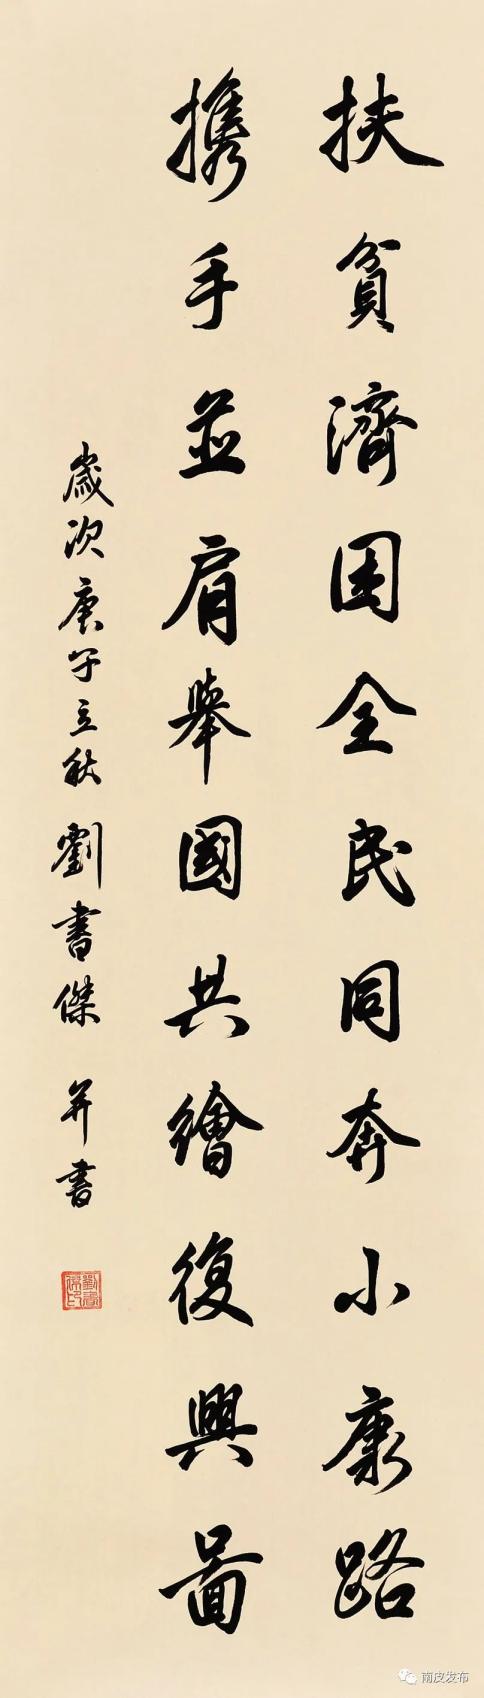 扶貧濟困全民同奔小康路
携手並肩舉國共繪復興啚
歲次庚子立秋劉書傑并書
南皮发布